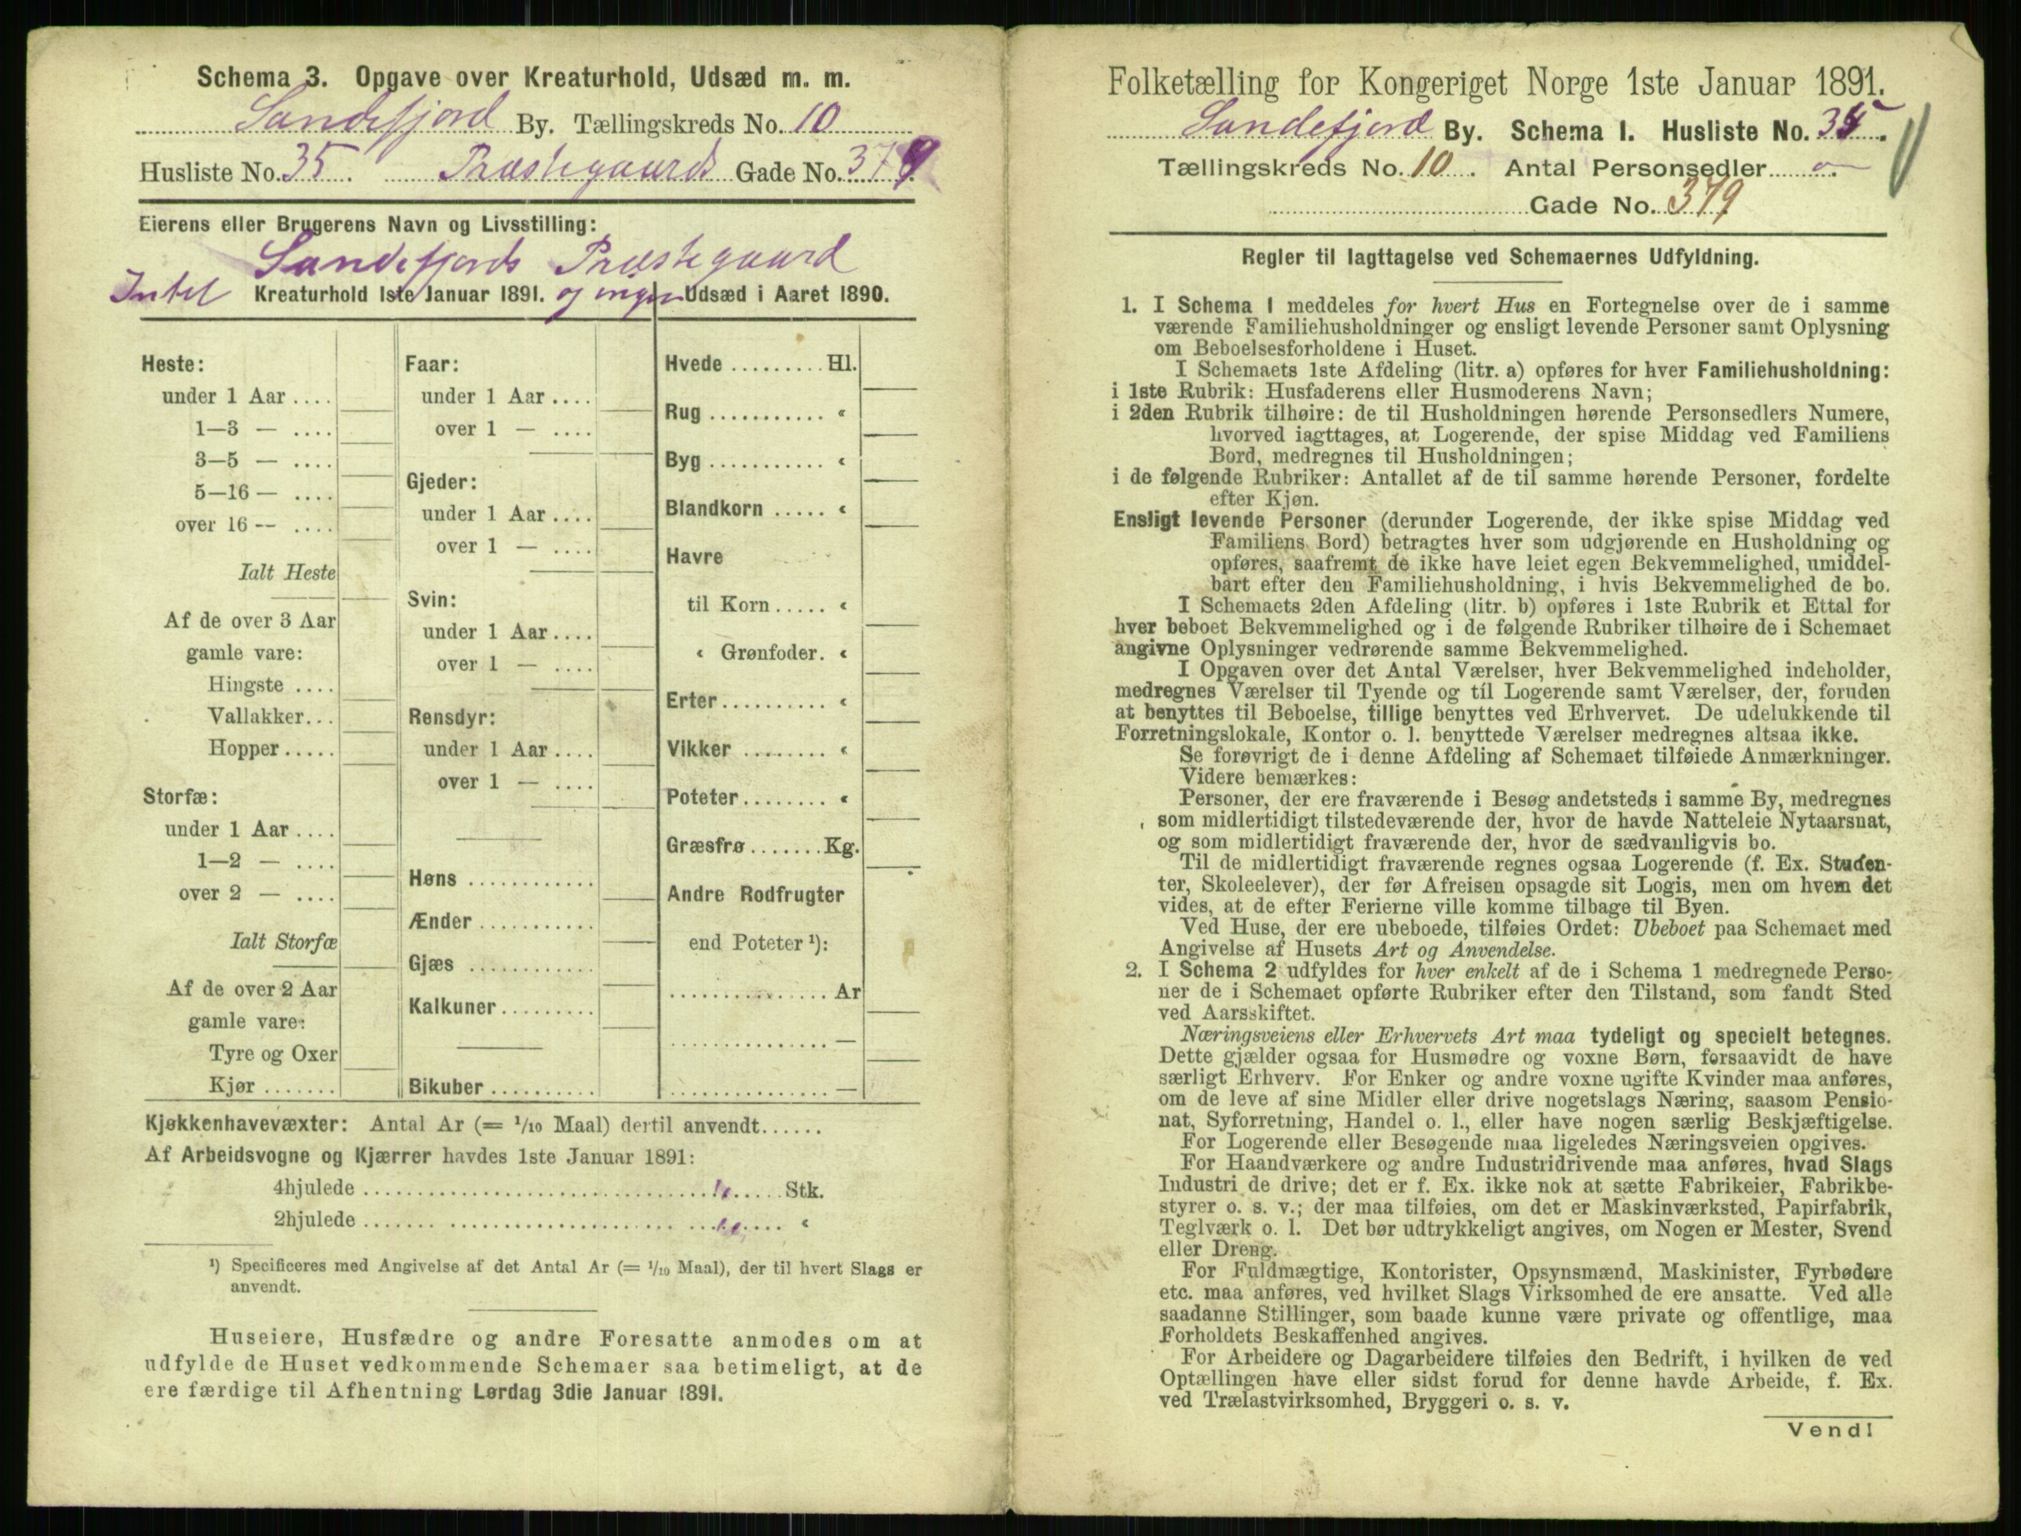 Schema 3. Opgave over Kreaturhold, Udsæd m. m.
Sandefjord By. Tællingskreds No. 10
Husliste No. 35. Præstegaards Gade No. 379
Eierens eller Brugerens Navn og Livsstilling:
Sandefjords Præstegaard
Intet Kreaturhold 1ste Januar 1891. og ingen Udsæd i Aaret 1890.
Heste:
under 1 Aar ....
1—3 — ....
3—5 — ....
5—16 — ....
over 16 — ....
Ialt Heste
Af de over 3 Aar
gamle vare:
Hingste ....
Vallakker...
Hopper .....
Storfæ:
under 1 Aar ....
1—2 — ....
over 2 — ....
Ialt Storfæ
Af de over 2 Aar
gamle vare:
Tyre og Oxer
Kjør .......
Faar:
under 1 Aar ....
over 1 — ....
Gjeder:
under 1 Aar ....
over 1 — ....
Svin:
under 1 Aar ....
over 1 — ....
Rensdyr:
under 1 Aar ....
over 1 — ....
Høns ............
Ænder ...........
Gjæs ............
Kalkuner .........
Bikuber ..........
Hvede ......... Hl.
Rug ........... «
Byg ........... «
Blandkorn ..... «
Havre
til Korn ..... «
« Grønfoder. «
Erter .......... «
Vikker ........ «
Poteter ........ «
Græsfrø ....... Kg.
Andre Rodfrugter
end Poteter ¹):
............... Ar
............... —
............... —
Kjøkkenhavevæxter: Antal Ar (= 1/10 Maal) dertil anvendt......
Af Arbeidsvogne og Kjærrer havdes 1ste Januar 1891:
4hjulede ........ " ...... Stk.
2hjulede ........ " ...... «
¹) Specificeres med Angivelse af det Antal Ar (= 1/10 Maal), der til hvert Slags er
anvendt.
Huseiere, Husfædre og andre Foresatte anmodes om at
udfylde de Huset vedkommende Schemaer saa betimeligt, at de
ere færdige til Afhentning Lørdag 3die Januar 1891.
Folketælling for Kongeriget Norge 1ste Januar 1891.
Sandefjord By. Schema 1. Husliste No. 35.
Tællingskreds No. 10. Antal Personsedler o
Gade No. 379
Regler til Iagttagelse ved Schemaernes Udfyldning.
1. I Schema 1 meddeles for hvert Hus en Fortegnelse over de i samme
værende Familiehusholdninger og ensligt levende Personer samt Oplysning
om Beboelsesforholdene i Huset.
I Schemaets 1ste Afdeling (litr. a) opføres for hver Familiehusholdning:
i 1ste Rubrik: Husfaderens eller Husmoderens Navn;
i 2den Rubrik tilhøire: de til Husholdningen hørende Personsedlers Numere,
hvorved iagttages, at Logerende, der spise Middag ved Familiens
Bord, medregnes til Husholdningen;
i de følgende Rubriker: Antallet af de til samme hørende Personer, fordelte
efter Kjøn.
Ensligt levende Personer (derunder Logerende, der ikke spise Middag ved
Familiens Bord) betragtes hver som udgjørende en Husholdning og
opføres, saafremt de ikke have leiet egen Bekvemmelighed, umiddel-
bart efter den Familiehusholdning, i hvis Bekvemmelighed de bo.
I Schemaets 2den Afdeling (litr. b) opføres i 1ste Rubrik et Ettal for
hver beboet Bekvemmelighed og i de følgende Rubriker tilhøire de i Schemaet
angivne Oplysninger vedrørende samme Bekvemmelighed.
I Opgaven over det Antal Værelser, hver Bekvemmelighed indeholder,
medregnes Værelser til Tyende og til Logerende samt Værelser, der, foruden
at benyttes til Beboelse, tillige benyttes ved Erhvervet. De udelukkende til
Forretningslokale, Kontor o. l. benyttede Værelser medregnes altsaa ikke.
Se forøvrigt de i denne Afdeling af Schemaet tilføiede Anmærkninger.
Videre bemærkes:
Personer, der ere fraværende i Besøg andetsteds i samme By, medregnes
som midlertidigt tilstedeværende der, hvor de havde Natteleie Nytaarsnat,
og som midlertidigt fraværende der, hvor de sædvanligvis bo.
Til de midlertidigt fraværende regnes ogsaa Logerende (f. Ex. Studen-
ter, Skoleelever), der før Afreisen opsagde sit Logis, men om hvem det
vides, at de efter Ferierne ville komme tilbage til Byen.
Ved Huse, der ere ubeboede, tilføies Ordet: Ubeboet paa Schemaet med
Angivelse af Husets Art og Anvendelse.
2. I Schema 2 udfyldes for hver enkelt af de i Schema 1 medregnede Perso-
ner de i Schemaet opførte Rubriker efter den Tilstand, som fandt Sted
ved Aarsskiftet.
Næringsveiens eller Erhvervets Art maa tydeligt og specielt betegnes.
Dette gjælder ogsaa for Husmødre og voxne Børn, forsaavidt de have
særligt Erhverv. For Enker og andre voxne ugifte Kvinder maa anføres,
om de leve af sine Midler eller drive nogetslags Næring, saasom Pensio-
nat, Syforretning, Handel o. l., eller have nogen særlig Beskjæftigelse.
For Logerende eller Besøgende maa ligeledes Næringsveien opgives.
For Haandværkere og andre Industridrivende maa anføres, hvad Slags
Industri de drive; det er f. Ex. ikke nok at sætte Fabrikeier, Fabrikbe-
styrer o. s. v.; der maa tilføies, om det er Maskinværksted, Papirfabrik,
Teglværk o. l. Det bør udtrykkeligt angives, om Nogen er Mester, Svend
eller Dreng.
For Fuldmægtige, Kontorister, Opsynsmænd, Maskinister, Fyrbødere
etc. maa anføres, ved hvilket Slags Virksomhed de ere ansatte. Ved alle
saadanne Stillinger, som baade kunne være private og offentlige, maa
Forholdets Beskaffenhed angives.
For Arbeidere og Dagarbeidere tilføies den Bedrift, i hvilken de ved
Optællingen have eller sidst forud for denne havde Arbeide, f. Ex.
ved Trælastvirksomhed, Bryggeri o. s. v.
Vend!